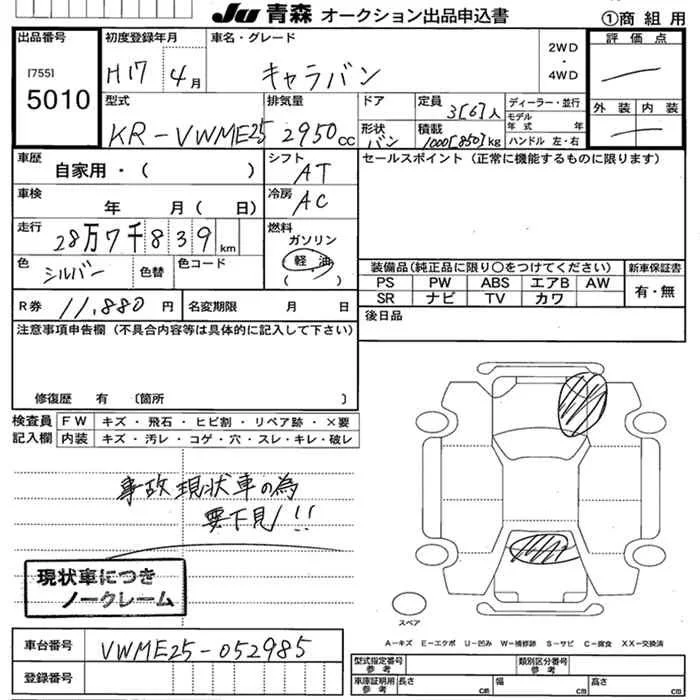 JU 青森 オークション出品申込書 ①商組用
出品番号 初度登録年月 車名・グレード 2WD ・ 4WD 評価点
[755]
5010
H17 4月 キャラバン
外装 内装
型式 排気量 ドア 定員 3[6]人 ディーラー・並行
KR-VWME25 2950cc 形状 バン 積載 1000[850]kg モデル年式 年 ハンドル 左・右
車歴 自家用・( ) シフト AT セールスポイント(正常に機能するものに限ります)
車検 年 月( 日) 冷房 AC
走行 28万7千839km 燃料 ガソリン 軽油 ( )
色 シルバー 色替 色コード
装備品(純正品に限り○をつけてください) 新車保証書
PS PW ABS エアB AW 有・無
SR ナビ TV カワ
R券 11,880円 名変期限 月 日 後日品
注意事項申告欄(不具合内容等は具体的に記入して下さい)
修復歴 有 〔箇所 〕
検査員記入欄 FW キズ・飛石・ヒビ割・リペア跡・×要
内装 キズ・汚レ・コゲ・穴・スレ・キレ・破レ
事故現状車の為
要下見!!
現状車につき
ノークレーム
スペア
A-キズ E-エクボ U-凹み W-補修跡 S-サビ C-腐食 XX-交換済
車台番号 VWME25-052985
登録番号
型式指定番号 参考 類別区分番号 参考
車庫証明用 参考 長さ cm 幅 cm 高さ cm